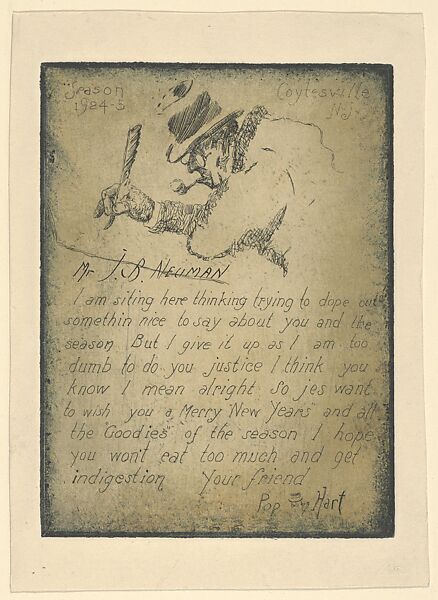 Season
1924-5
Coytesville
N.J.
Mr J.B. Neuman
I am siting here thinking trying to dope out
somethin nice to say about you and the
season But I give it up as I am too
dumb to do you justice I think you
know I mean alright So jes want
to wish you a Merry New Years and all
the "Goodies" of the season I hope
you won't eat too much and get
indigestion Your friend
Pop Hart